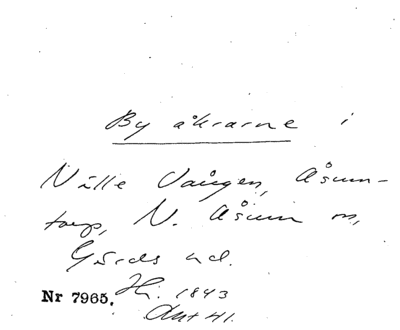 By åkrarne i
Nälle Vången, Åsum-
torp, N. Åsum sn,
Gärds hd.
Nr 7965. Hi. 1843
Akt 41.